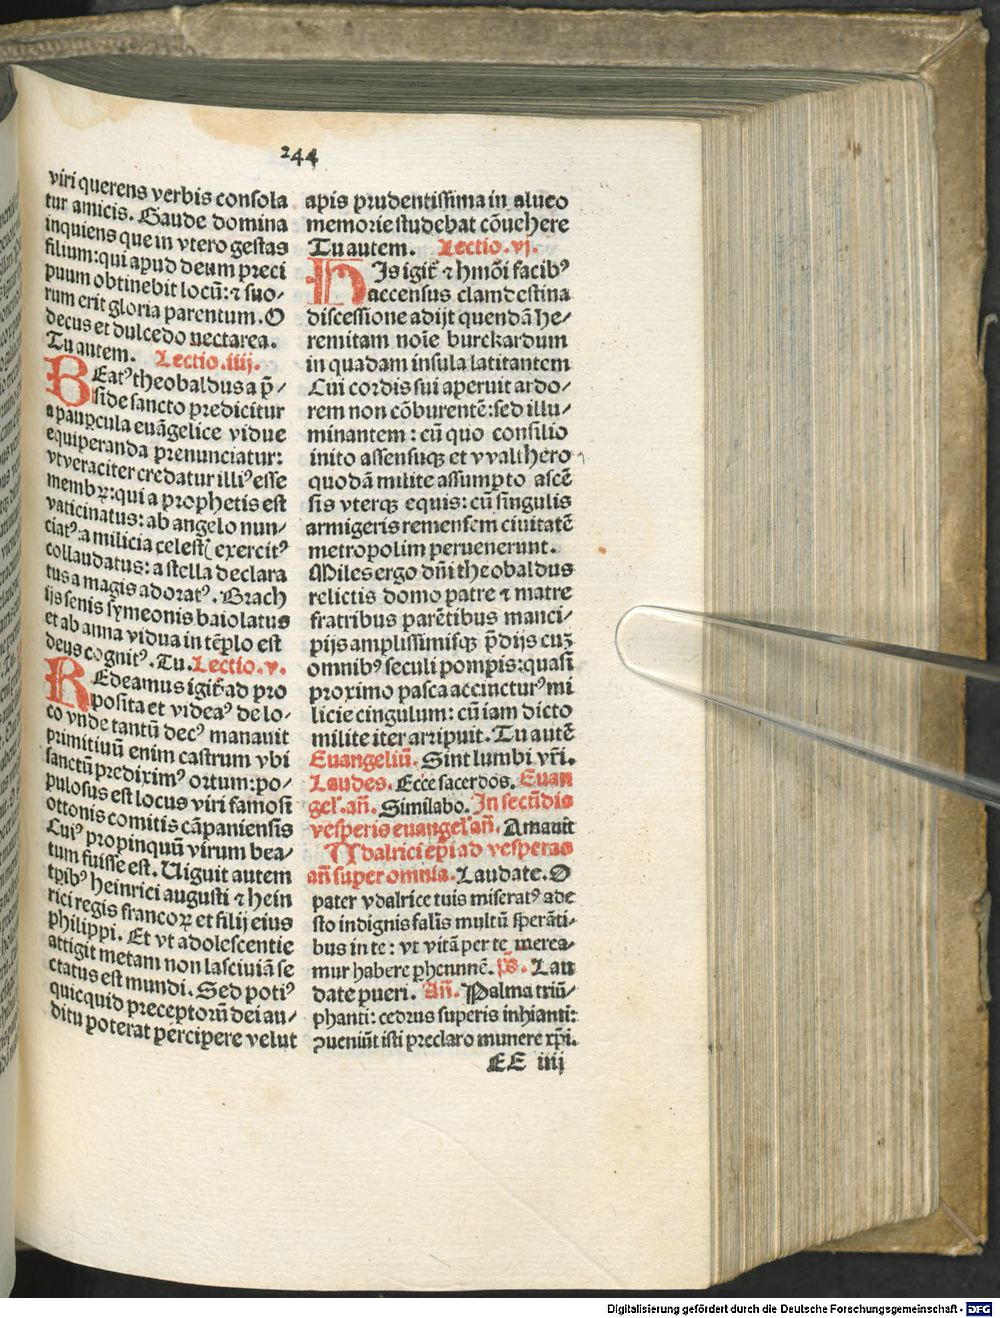 244
viri querens verbis consola
tur amicis. Gaude domina
inquiens que in vtero gestas
filium: qui apud deum preci
puum obtinebit locū: ⁊ suo⸗
rum erit gloria parentum. O
decus et dulcedo nectarea.
Tu autem. Lectio .iiij.
BEatꝰ theobaldus a p̄⸗
side sancto predicitur
a paupcula euāgelice vidue
equiperanda prenunciatur:
vt veraciter credatur illiꝰ esse
membꝝ: qui a prophetis est
vaticinatus: ab angelo nun⸗
ciatꝰ: a milicia celesti exercitꝰ
collaudatus: a stella declara
tus a magis adoratꝰ. Brach
ijs senis symeonis baiolatus
et ab anna vidua in tēplo est
deus cognitꝰ. Tu. Lectio .v.
REdeamus igit̄ ad pro
posita et videaꝰ de lo⸗
co vnde tantū decꝰ manauit
primitiuū enim castrum vbi
sanctū prediximꝰ ortum: po⸗
pulosus est locus viri famosi
ottonis comitis cāpaniensis
Cuiꝰ propinquū virum bea⸗
tum fuisse est. Uiguit autem
tp̄ibꝰ heinrici augusti ⁊ hein
rici regis francoꝝ et filij eius
philippi. Et vt adolescentie
attigit metam non lasciuiā se
ctatus est mundi. Sed potiꝰ
quicquid preceptorū dei au⸗
ditu poterat percipere velut
apis prudentissima in alueo
memorie studebat cōuehere
Tu autem. Lectio .vj.
HIs igit̄ ⁊ hmōi facibꝰ
accensus clamdestina
discessione adijt quendā he⸗
remitam noīe burckardum
in quadam insula latitantem
Cui cordis sui aperuit ardo⸗
rem non cōburentē: sed illu⸗
minantem: cū quo consilio
inito assensuqꝫ et vvalthero
quodā milite assumpto ascē
sis vterqꝫ equis: cū singulis
armigeris remensem ciuitatē
metropolim peruenerunt.
Miles ergo dn̄i theobaldus
relictis domo patre ⁊ matre
fratribus parētibus manci⸗
pijs amplissimisqꝫ p̄dijs cuꝫ
omnibꝰ seculi pompis: quasi
proximo pasca accincturꝰ mi
licie cingulum: cū iam dicto
milite iter arripuit. Tu autē
Euangeliū. Sint lumbi vr̄i.
Laudes. Ecce sacerdos. Euan
gel̄. an̄. Similabo. In secūdis
vesperis euangel̄ an̄. Amauit
Udalrici ep̄i ad vesperas
an̄ super omnia. Laudate. O
pater vdalrice tuis miseratꝰ ade
sto indignis fal̄is multū sperāti⸗
bus in te: vt vitā per te merea⸗
mur habere ꝑhennē. p̄s. Lau
date pueri. An̄. Palma triū⸗
phanti: cedrus superis inhianti:
ꝯueniūt isti preclaro munere xp̄i.
EE iiij
Digitalisierung gefördert durch die Deutsche Forschungsgemeinschaft - DFG